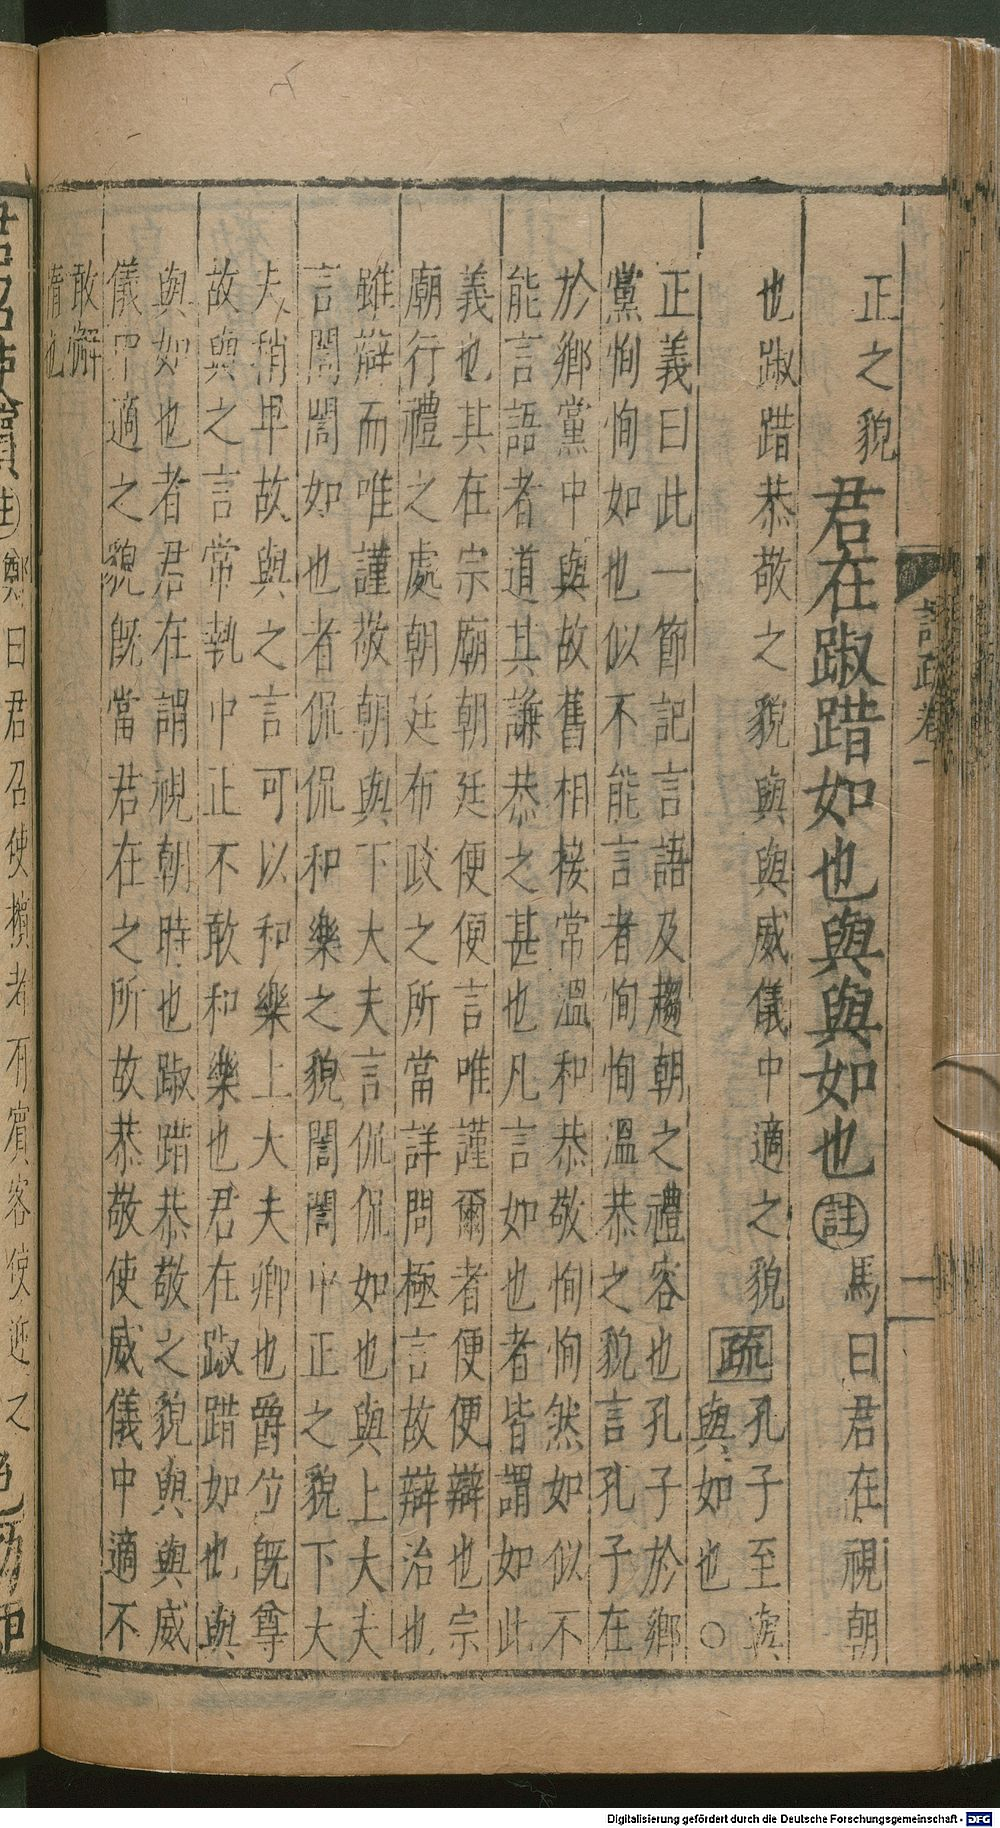 正之貌
君在踧踖如也與與如也註馬曰君在視朝
也踧踖恭敬之貌與與威儀中適之貌疏孔子至與
與如也○
正義曰此一節記言語及趨朝之禮容也孔子於鄉
黨恂恂如也似不能言者恂恂溫恭之貌言孔子在
於鄉黨中與故舊相接常溫和恭敬恂恂然如似不
能言語者道其謙恭之甚也凡言如也者皆謂如此
義也其在宗廟朝廷便便言唯謹爾者便便辯也宗
廟行禮之處朝廷布政之所當詳問極言故辯治也
雖辯而唯謹敬朝與下大夫言侃侃如也與上大夫
言誾誾如也者侃侃和樂之貌誾誾中正之貌下大
夫稍卑故與之言可以和樂上大夫卿也爵位既尊
故與之言常執中正不敢和樂也君在踧踖如也與
與如也者君在謂視朝時也踧踖恭敬之貌與與威
儀中適之貌既當君在之所故恭敬使威儀中適不
敢懈
惰也
君召使擯註鄭曰君召使擯者有賓客使迎之
Digitalisierung gefördert durch die Deutsche Forschungsgemeinschaft - DFG